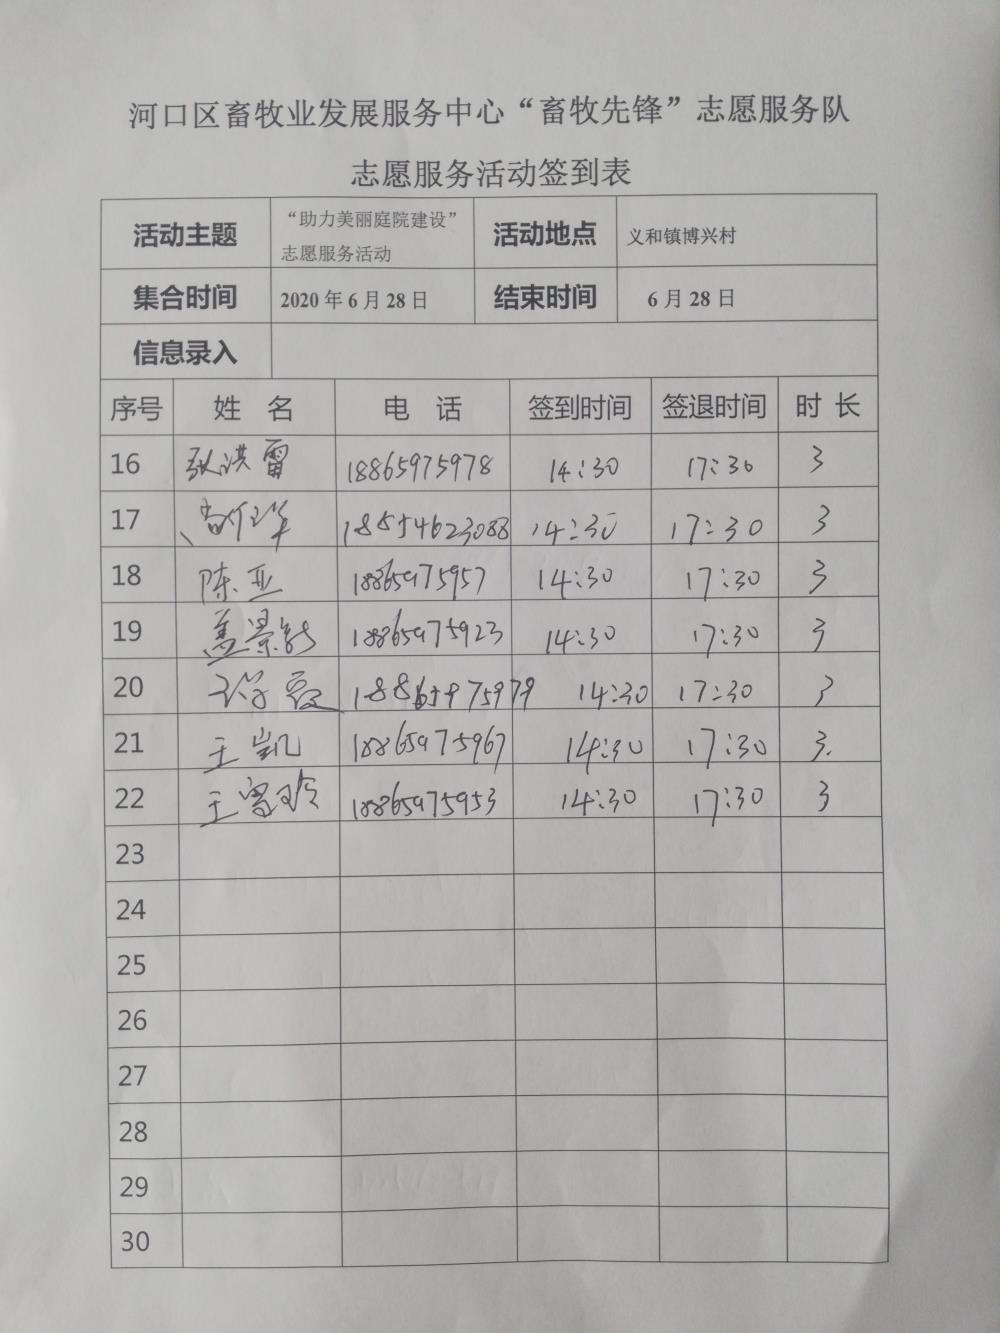 河口区畜牧业发展服务中心“畜牧先锋”志愿服务队
志愿服务活动签到表
活动主题 “助力美丽庭院建设” 志愿服务活动 活动地点 义和镇博兴村
集合时间 2020 年 6 月 28 日 结束时间 6 月 28 日
信息录入
序号 姓 名 电 话 签到时间 签退时间 时 长
16 张洪雷 18865975978 14:30 17:30 3
17 18854623088 14:30 17:30 3
18 陈亚 18865975957 14:30 17:30 3
19 盖景新 18865975923 14:30 17:30 3
20 18865975979 14:30 17:30 3
21 王凯 18865975967 14:30 17:30 3.
22 王雪玲 18865975953 14:30 17:30 3
23
24
25
26
27
28
29
30